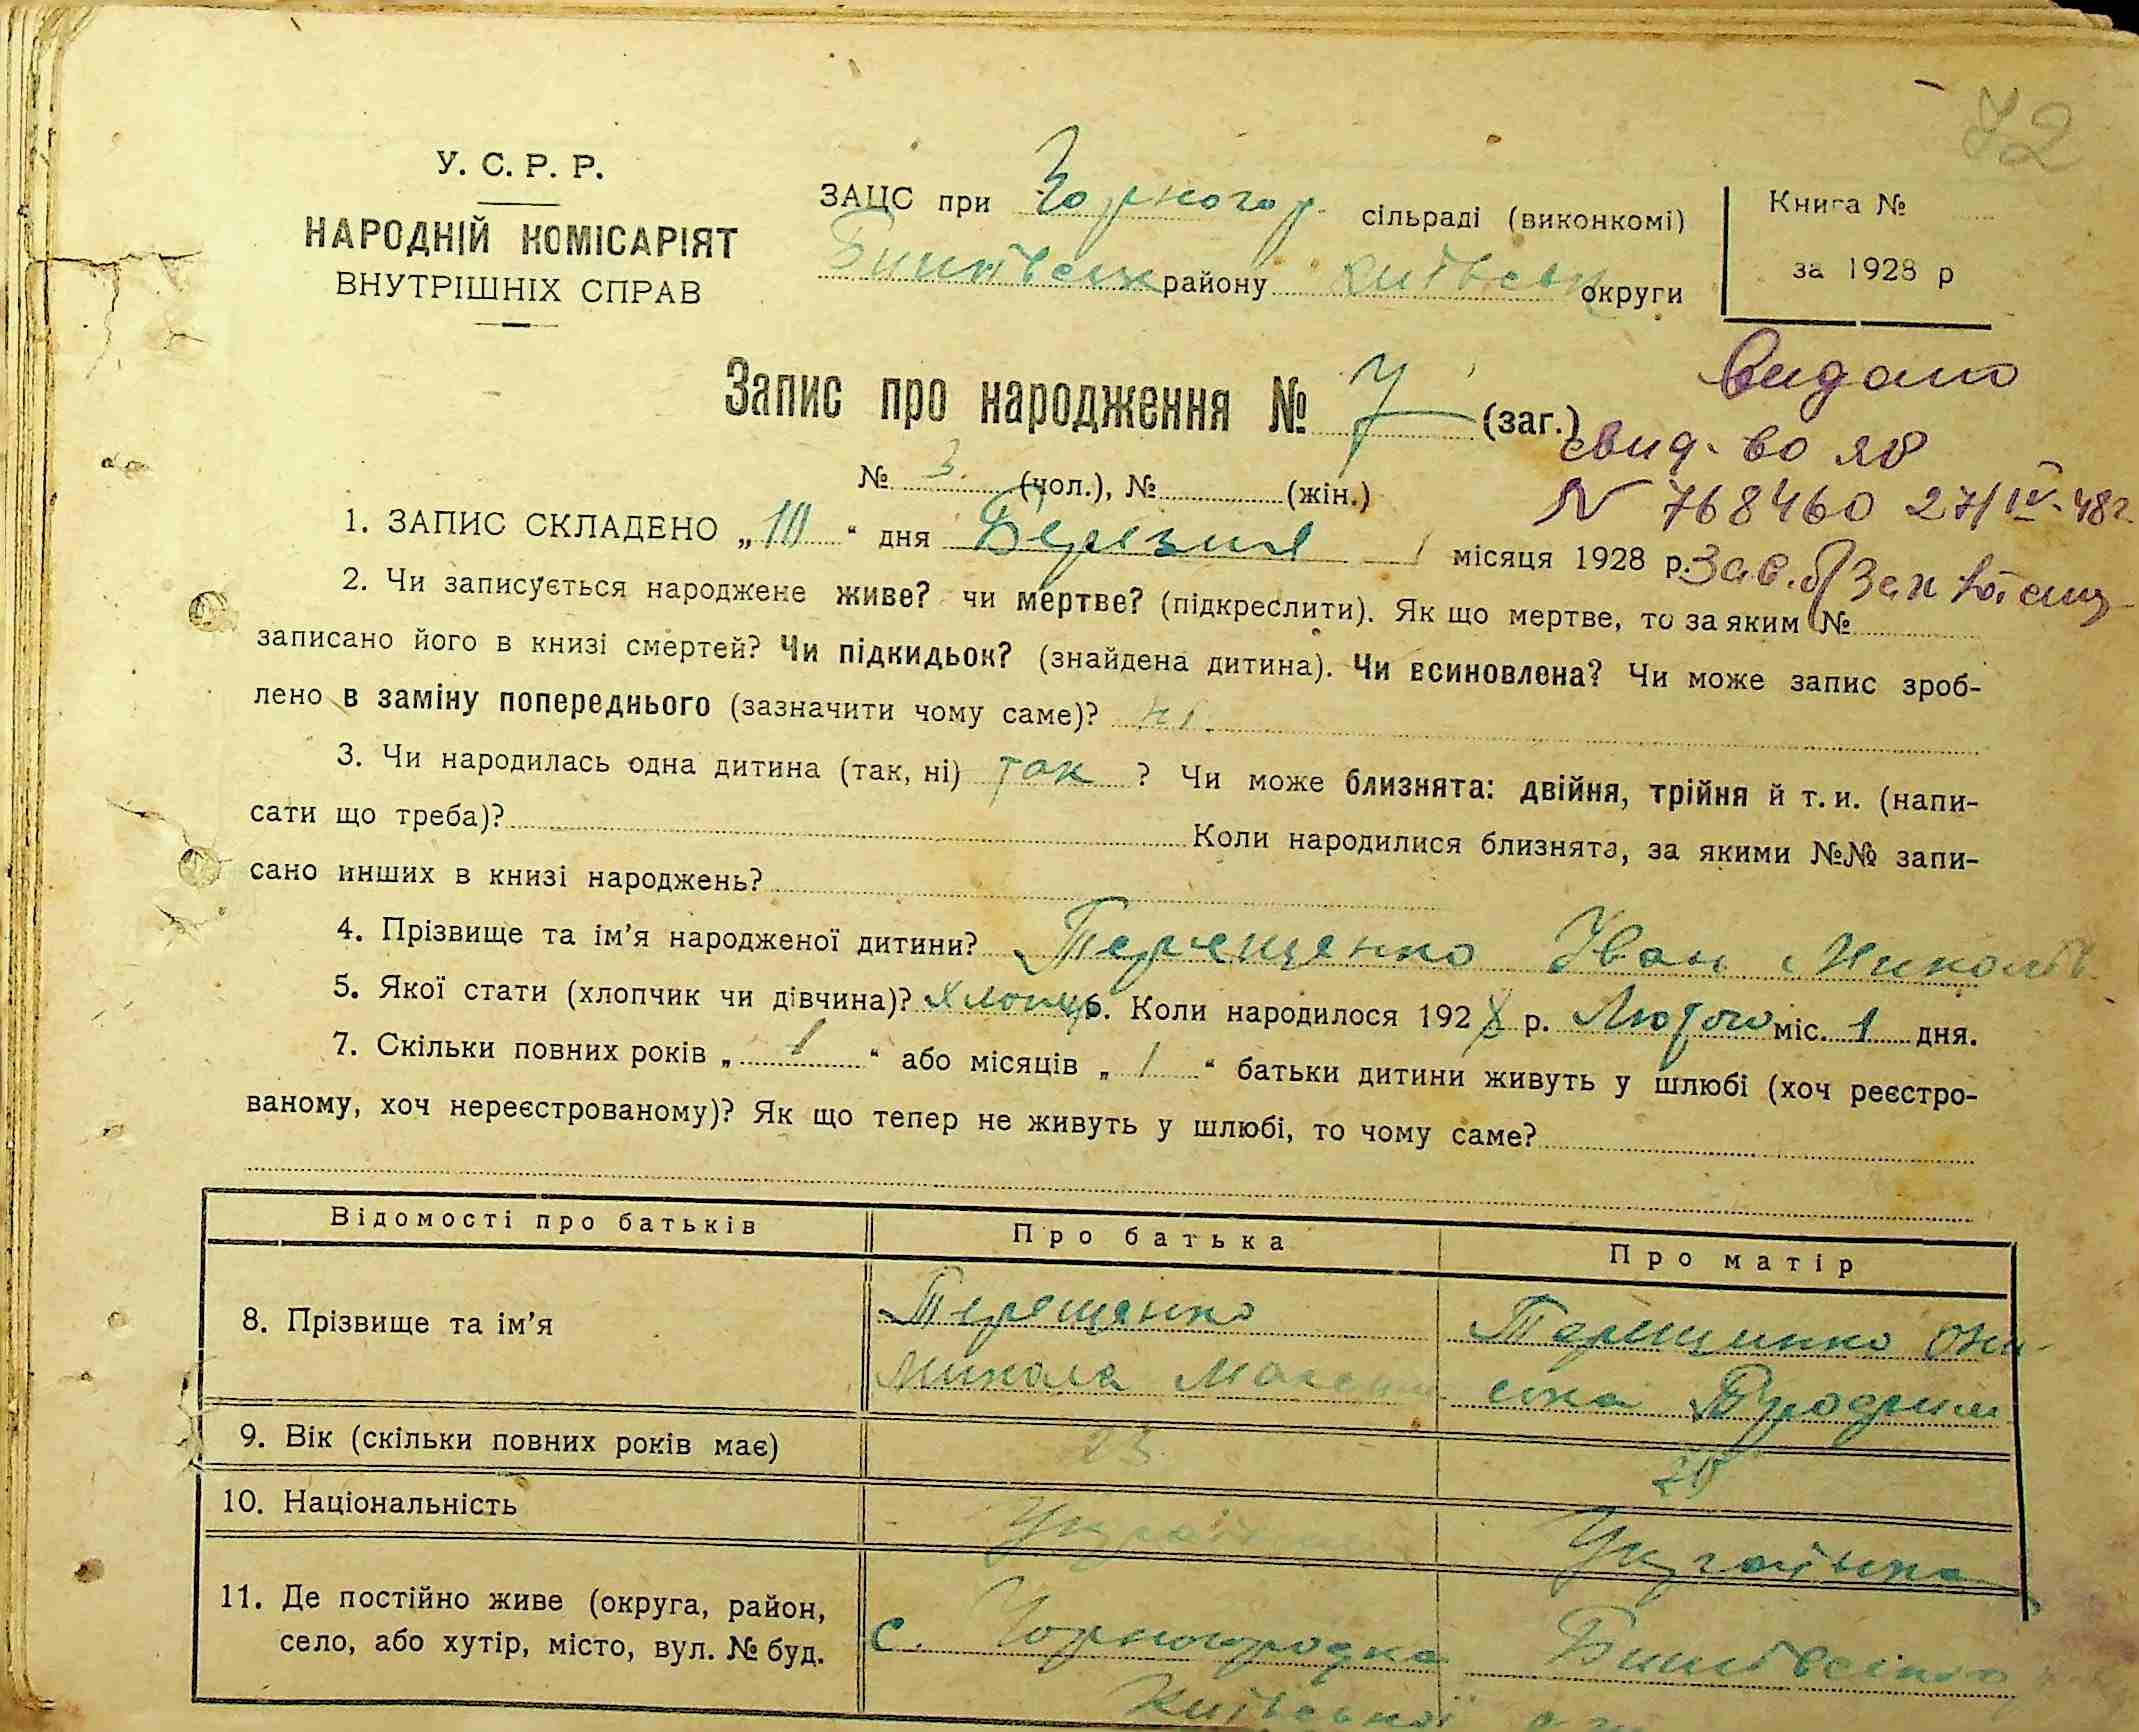 72
У. С. Р. Р.
НАРОДНІЙ КОМІСАРІЯТ
ВНУТРІШНІХ СПРАВ
ЗАЦС при Чорногор. сільраді (виконкомі)
Бишівськ району Київськ округи
Книга №
за 1928 р
Запис про народження № 7 (заг.)
№ 3 (чол.), № (жін.)
Видано
свид-во ЯЮ
N 768460 27/IV-48г.
Зав. б/Зап
1. ЗАПИС СКЛАДЕНО „10“ дня Березня місяця 1928 р.
2. Чи записується народжене живе? чи мертве? (підкреслити). Як що мертве, то за яким №
записано його в книзі смертей? Чи підкидьок? (знайдена дитина). Чи всиновлена? Чи може запис зроб-
лено в заміну попереднього (зазначити чому саме)? ні.
3. Чи народилась одна дитина (так, ні) так ? Чи може близнята: двійня, трійня й т. и. (напи-
сати що треба)? Коли народилися близнята, за якими №№ запи-
сано инших в книзі народжень?
4. Прізвище та ім’я народженої дитини? Терещенко Іван Миколів
5. Якої стати (хлопчик чи дівчина)? хлопць 6. Коли народилося 1928 р. Лютого міс. 1 дня.
7. Скільки повних років „ 1 “ або місяців „ 1 “ батьки дитини живуть у шлюбі (хоч реєстро-
ваному, хоч нереєстрованому)? Як що тепер не живуть у шлюбі, то чому саме?
Відомості про батьків Про батька Про матір
8. Прізвище та ім’я Терещенко Микола Терещинко
9. Вік (скільки повних років має) 23 20
10. Національність Українець Українка
11. Де постійно живе (округа, район,
село, або хутір, місто, вул. № буд. с. Чорногородка Бишівсіко
Київської